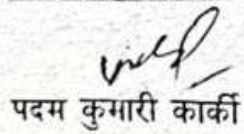 पदम कुमारी कार्की